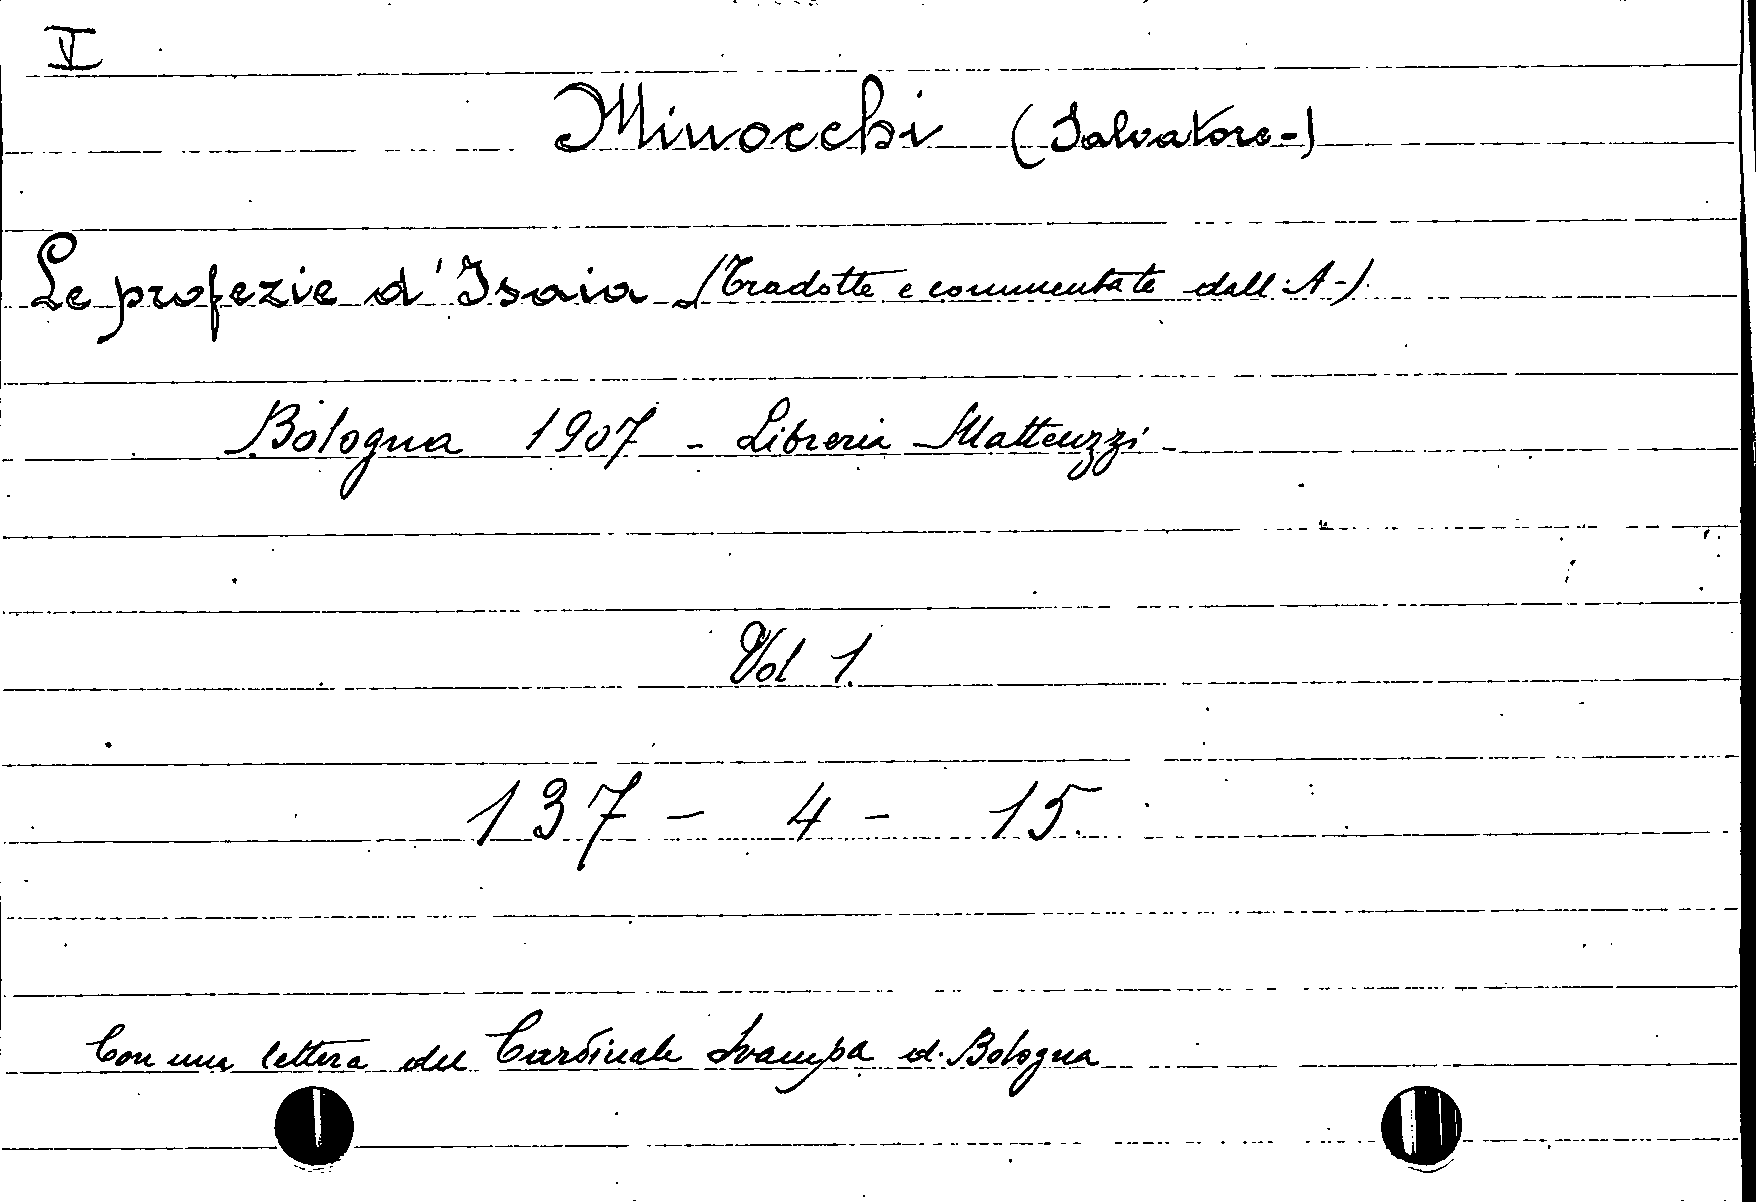 V
Minocchi (Salvatore-)
Le profezie d'Isaia (Tradotte e commentate dall'A-)
Bologna 1907 - Libreria Matteuzzi -
Vol 1.
137 - 4 - 15.
Con una lettera del Cardinale Svampa d. Bologna